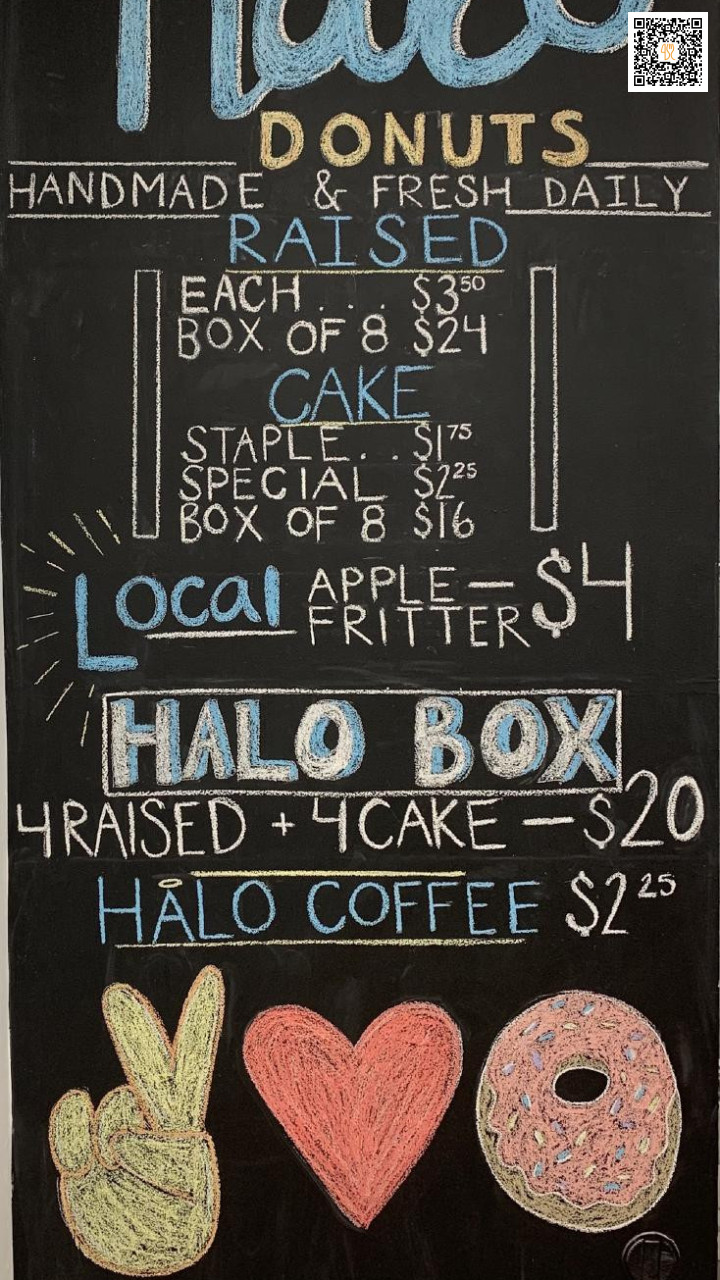 Halo
DONUTS
HANDMADE & FRESH DAILY
RAISED
EACH . . . $3⁵⁰
BOX OF 8 $24
CAKE
STAPLE . . $1⁷⁵
SPECIAL $2²⁵
BOX OF 8 $16
Local APPLE — $4
FRITTER
HALO BOX
4 RAISED + 4 CAKE — $20
HALO COFFEE $2²⁵